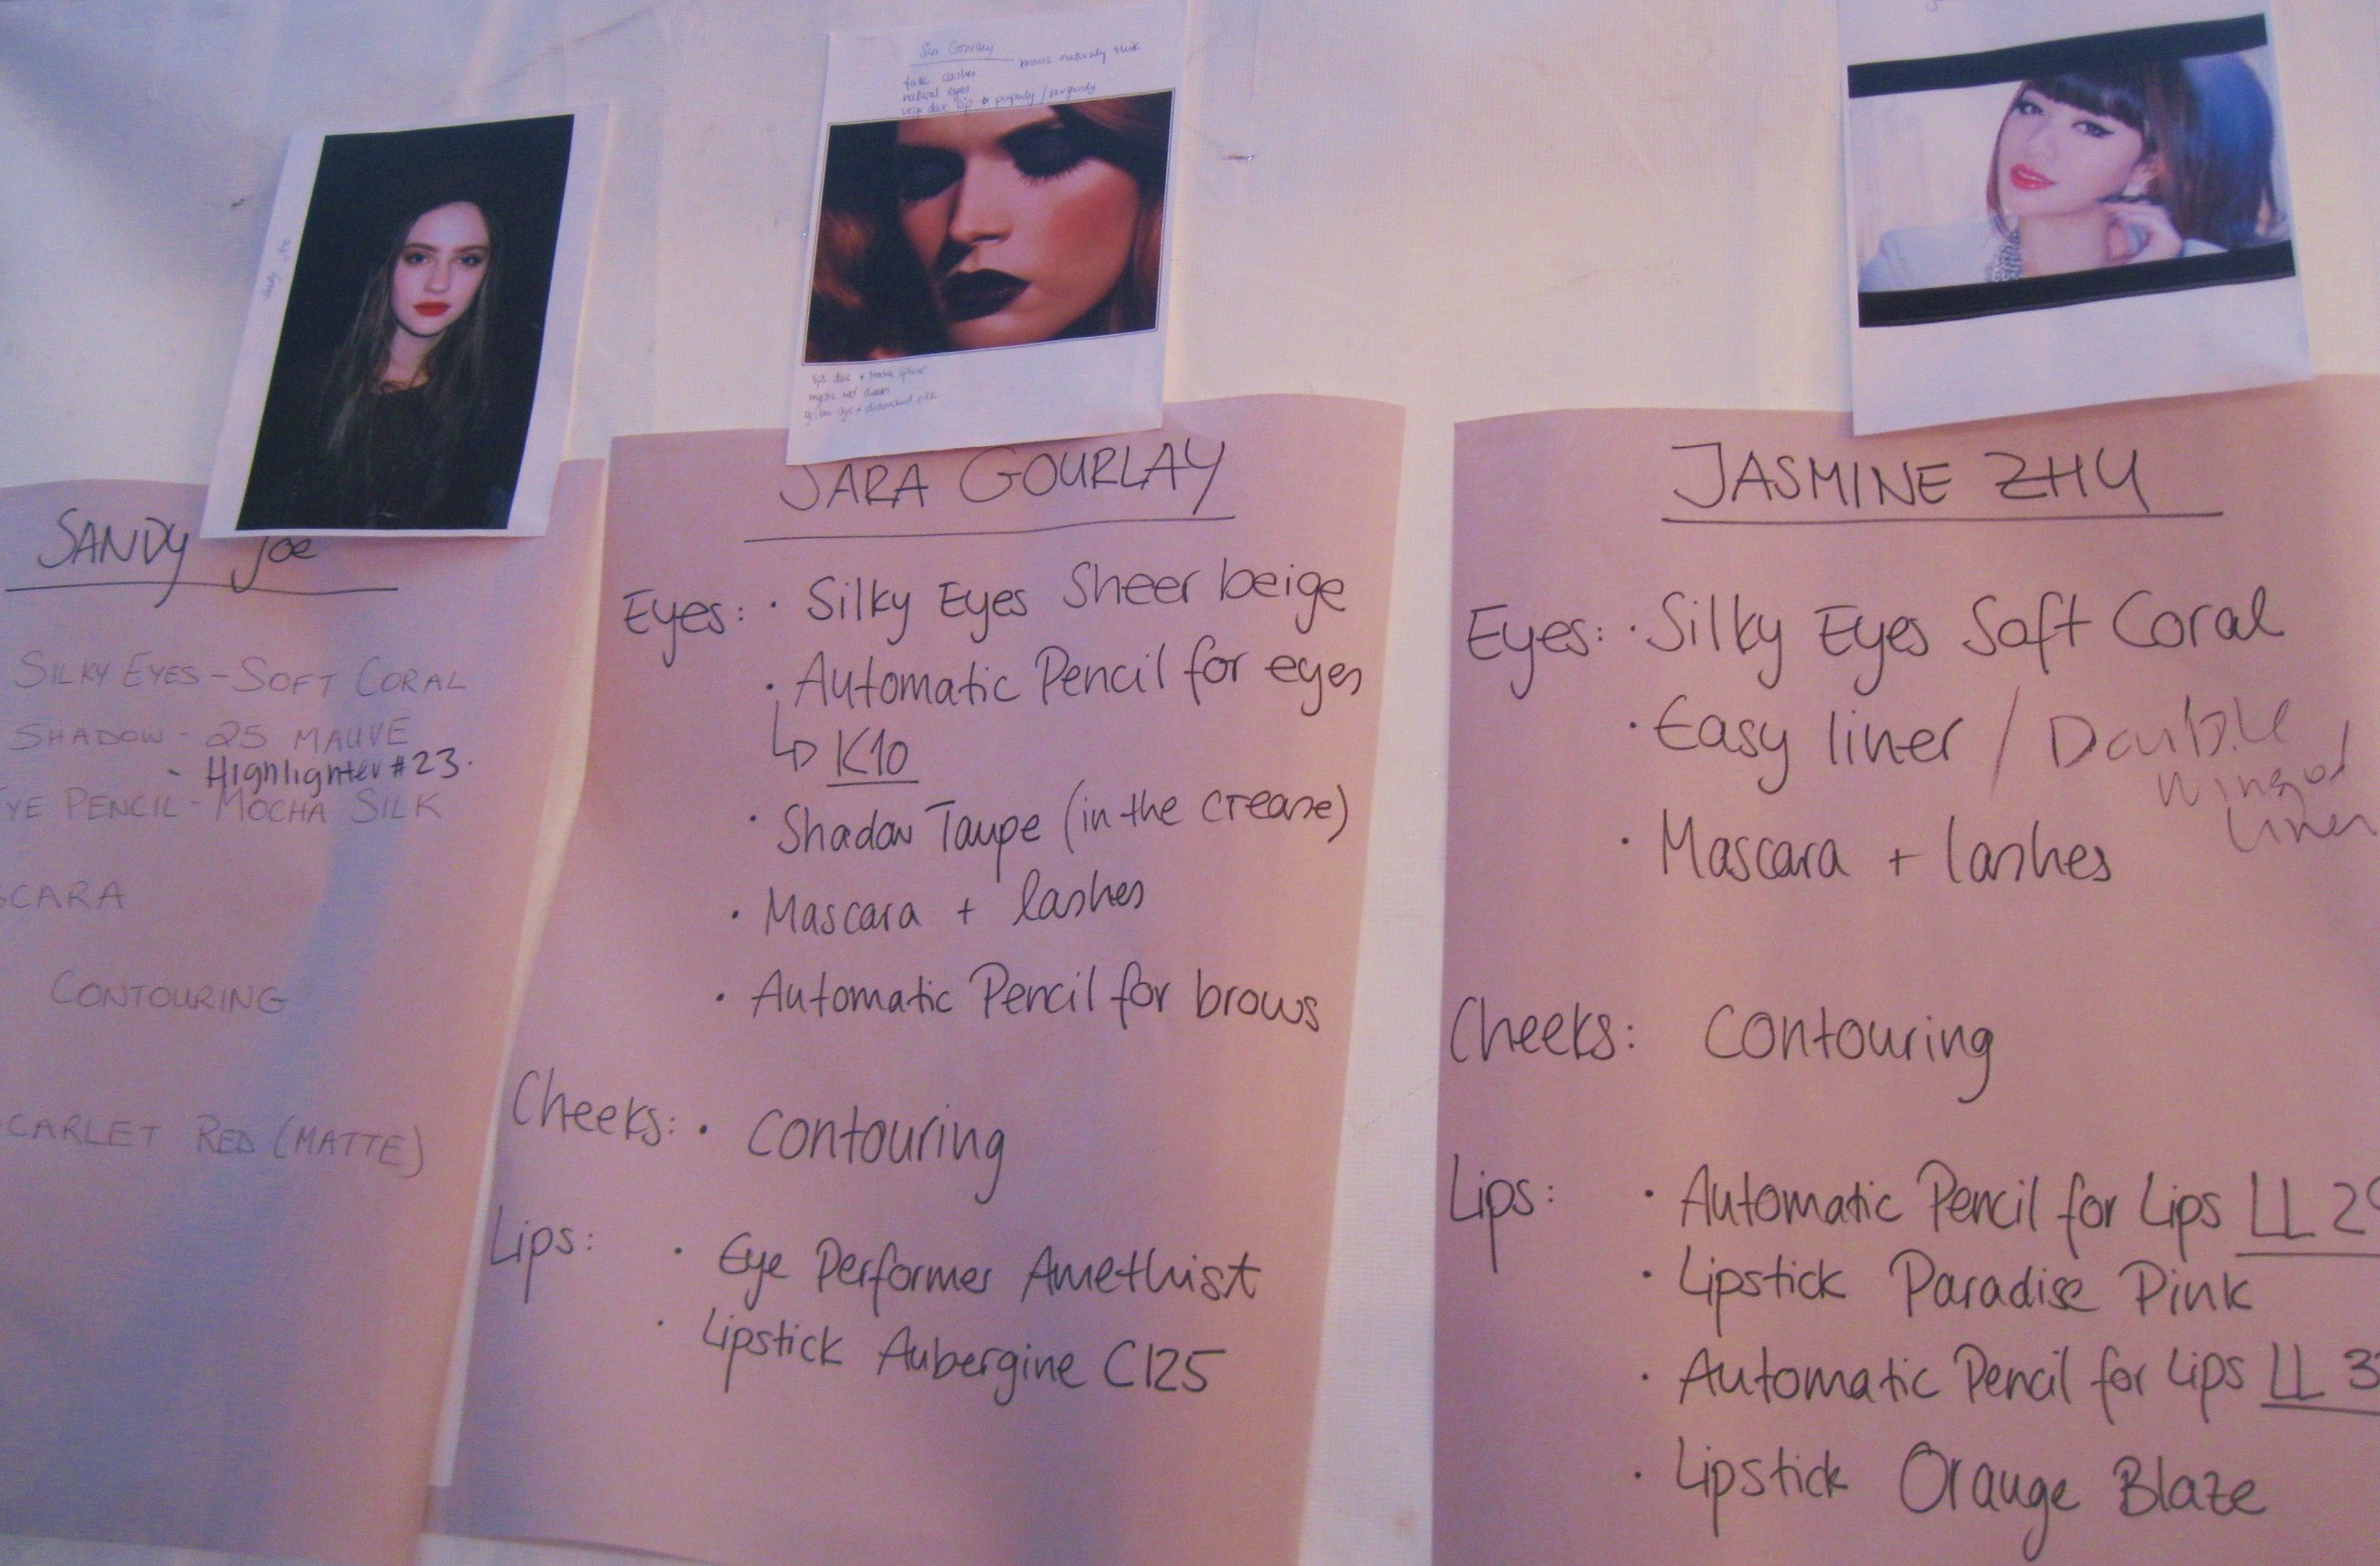 SANDY Joe
SILKY EYES - SOFT CORAL
SHADOW - 25 MAUVE
- Highlighter #23.
EYE PENCIL - MOCHA SILK
SCARA
CONTOURING
CARLET RED (MATTE)
Sara Gourlay
brows naturally thick
fake lashes
natural eyes
very dark lip purpley / burgundy
SARA GOURLAY
Eyes: · Silky Eyes Sheer beige
· Automatic Pencil for eyes
↳ K10
· Shadow Taupe (in the crease)
· Mascara + lashes
· Automatic Pencil for brows
Cheeks: · Contouring
Lips: · Eye Performer Amethist
· Lipstick Aubergine C125
JASMINE ZHU
Eyes: · Silky Eyes Soft Coral
· Easy liner / Double
winged
liner
· Mascara + lashes
Cheeks: Contouring
Lips: · Automatic Pencil for Lips LL 2
· Lipstick Paradise Pink
· Automatic Pencil for Lips LL 3
· Lipstick Orange Blaze